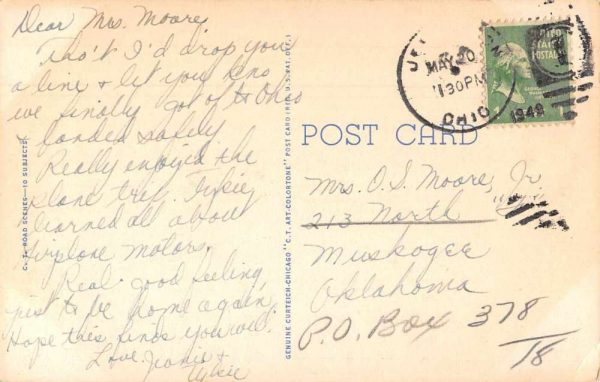 Dear Mrs. Moore,
Tho't I'd drop you
a line & let you kno
we finally got of to Ohio
landed safely
Really enjoyed the
plane trip.
learned all about
airplane motors.
Real good feeling
just to be home again,
Hope this finds you well.
Love.
MAY 20
1130 PM
1949
OHIO
UNITED
STATES
POSTAGE
POST CARD
Mrs. O. S. Moore, Jr.
213 North
Muskogee
Oklahoma
P.O. Box 378
18
C. T. ROAD SCENES—10 SUBJECTS
GENUINE CURTEICH-CHICAGO "C. T. ART-COLORTONE" POST CARD (REG. U.S. PAT. OFF.)